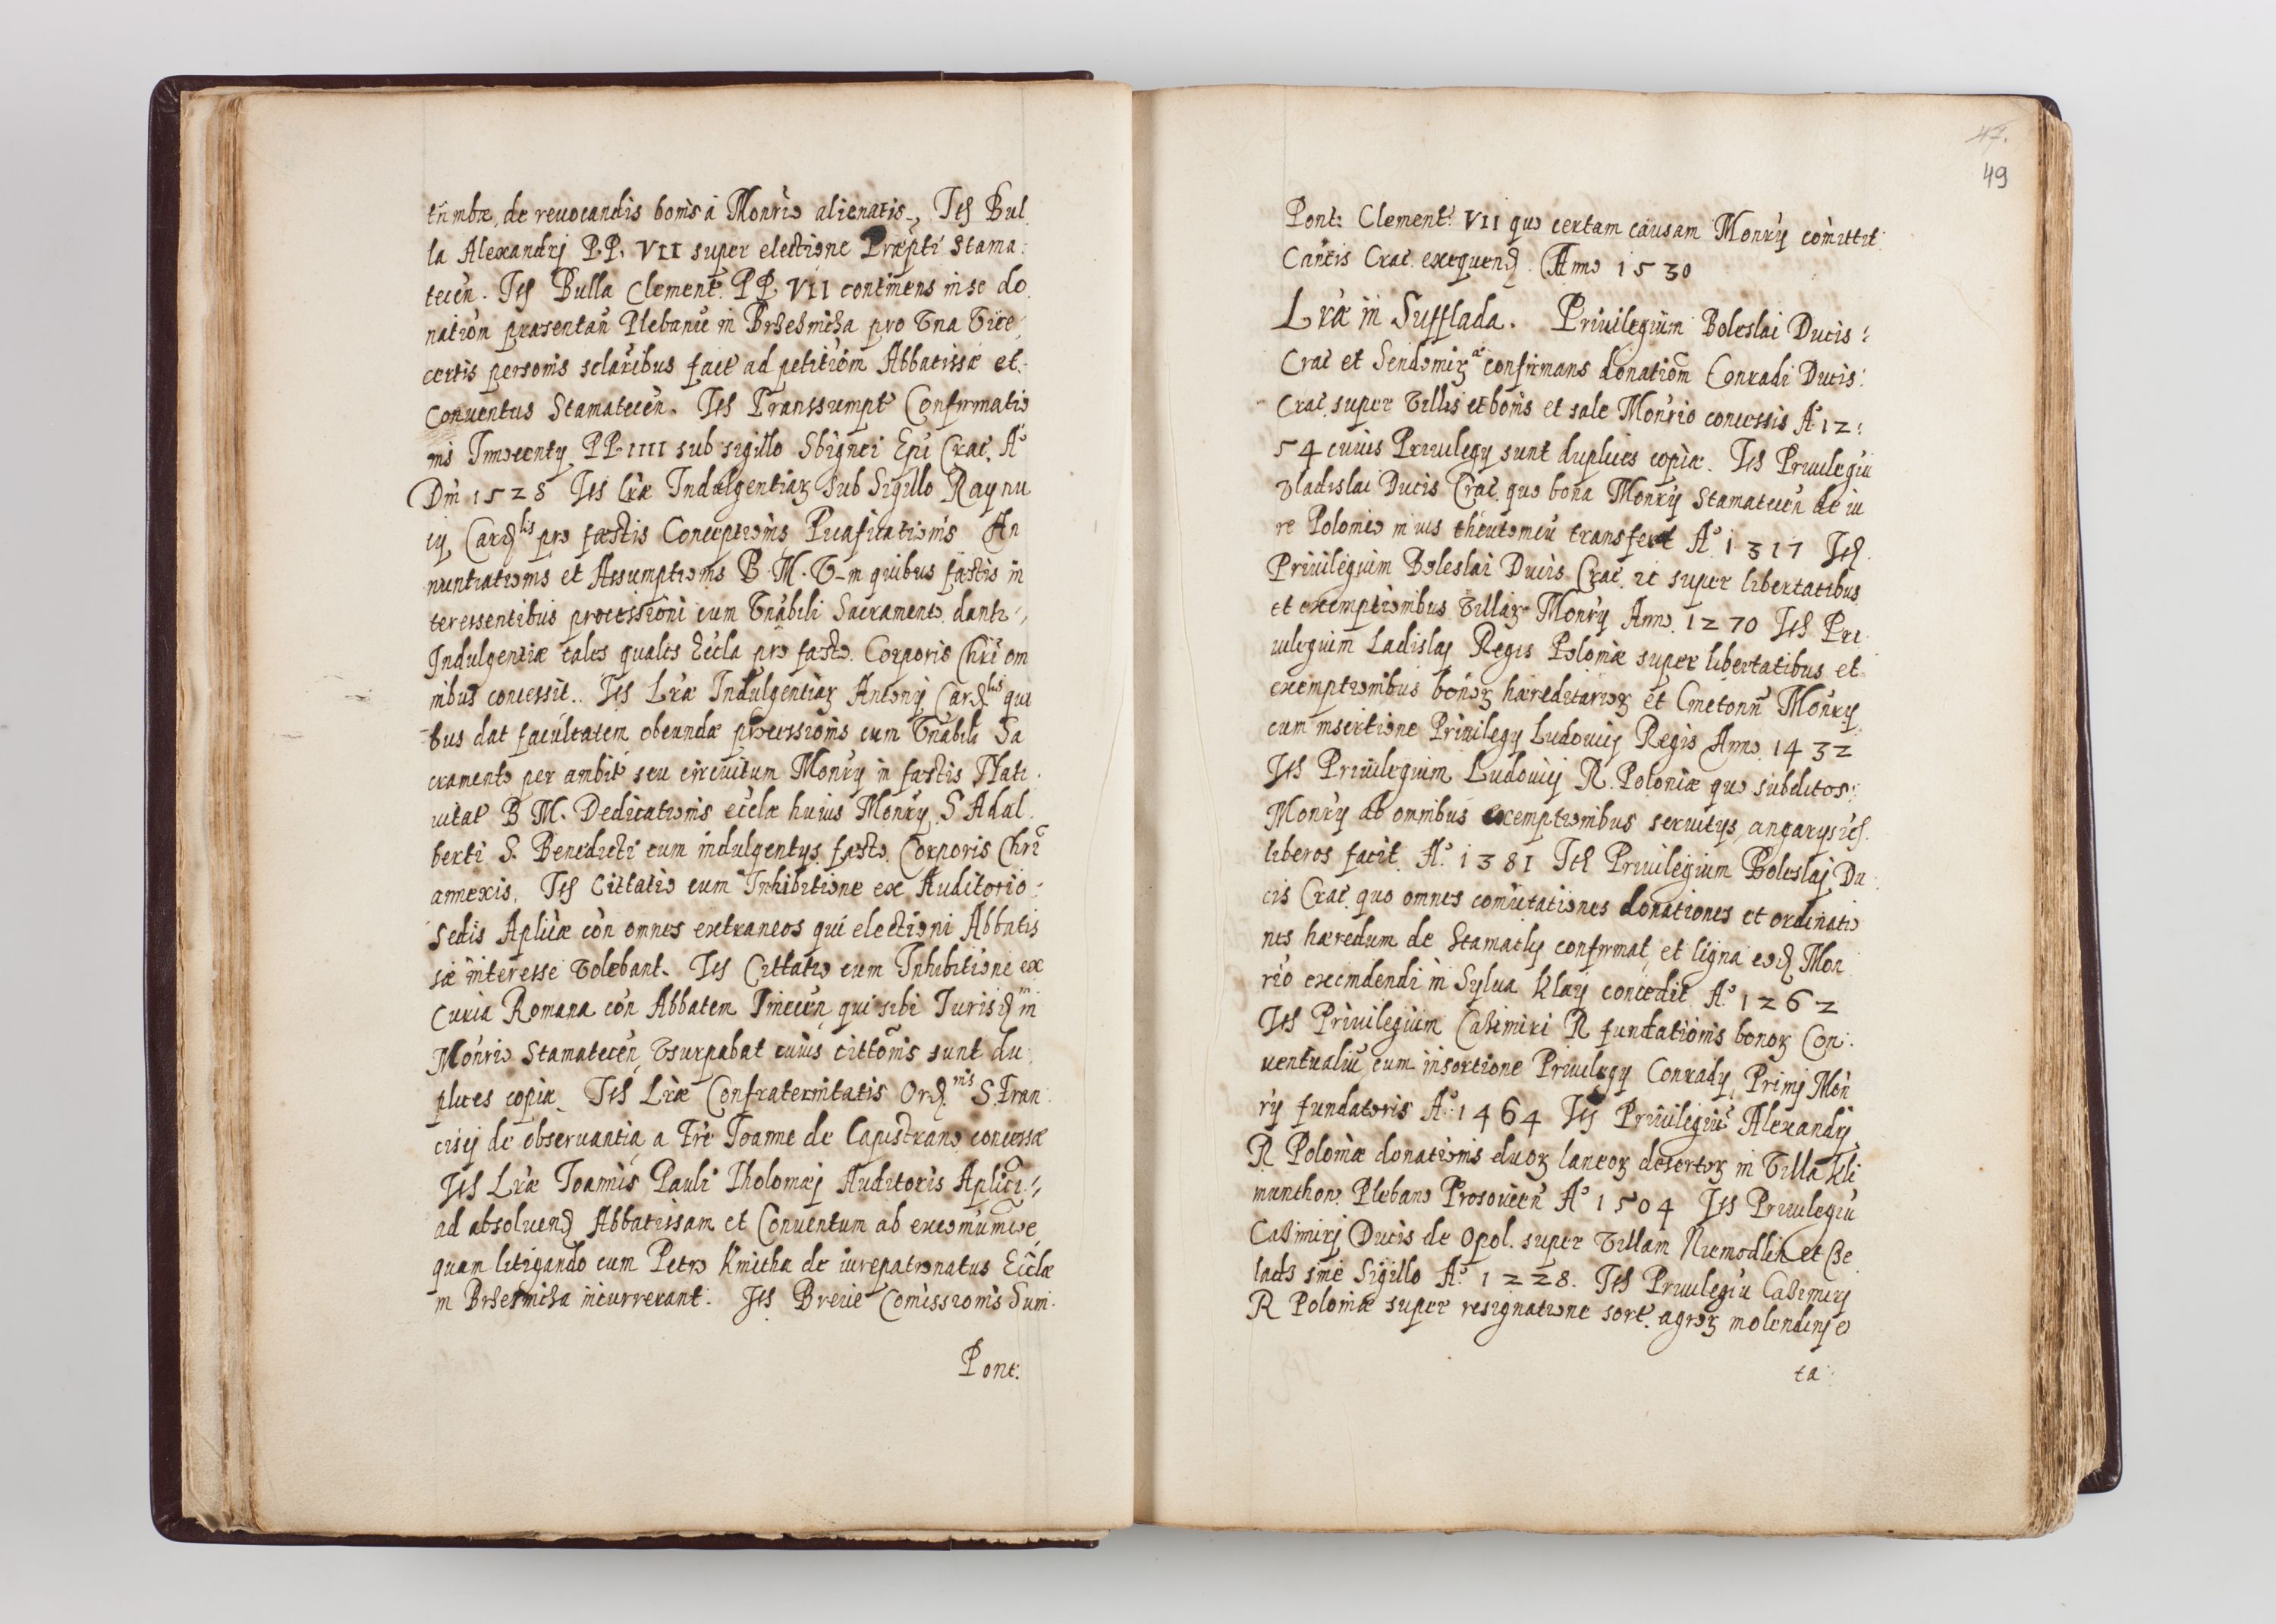 tũ mbræ, de reuocandis bonis a Monrio alienatis, Itẽ Bul
la Alexandrj P.P. VII super electione Præpti Stama:
tecen. Itẽ Bulla Clement. PP. VII continens in se do
natiõn præsentaň Plebanũ in Brzeznicza pro Vna Vice
certis personis sclaribus fact ad petitiõm Abbatissæ et
Conuentus Stamatecen. Itẽ Transsumpt Confirmatio
nis Innocenty PP. IIII sub sigillo Sbignei Epi Crac. Aº
Dni 1528 Itẽ Lræ Indulgentiaꝝ sub Sigillo Raynu
cij Cardˡⁱˢ pro fæstis Conceptionis Puaficationis An
nuntiationis et Assumptionis B. M. V_in quibus fæstis in
teressentibus processioni cum Vnabili Sacramento dantr,
Indulgentiæ tales quales Eccla pro fæsto Corporis Chri om
nibus concessit.. Itẽ Lræ Indulgentiaꝝ Antonij Cardˡⁱˢ qui
bus dat facultatem obeundæ processionis cum Vnabili Sa
cramento per ambit seu circuitum Monrÿ in fæstis Nati
uitat B M. Dedicationis ecclæ huius Monrÿ. S Adal
berti S. Benedicti cum indulgentys fæsto Corporis Chri
annexis. Itẽ Cittatio cum Inhibitione ex Auditorio
Sedis Aplicæ cõn omnes extraneos qui electioni Abbatis
sæ interesse Volebant. Itẽ Cittatio cum Inhibitione ex
Curia Romana cõn Abbatem Tinecen qui sibi Iurisdᵐ in
Monrio Stamatecen Vsurpabat cuius cittõnis sunt du
plices copiæ Itẽ Lræ Confraternitatis Ordⁿⁱˢ S. Fran
cisij de obseruantia a Fre Ioanne de Capistrano concessæ
Itẽ Lræ Ioannis Pauli Tholomæj Auditoris Aplici,
ad absoluend Abbatissam et Conuentum ab excomunice
quam litigando cum Petro Kmitha de iurepatronatus Ecclæ
in Brzeznicza incurrerant. Itẽ Breue Comissionis Sum
Pont:
47.
49
Pont: Clement: VII quo certam causam Monrÿ comittit
Cantis Crac. exequend. Anno 1530
Lræ in Sufflada. Priuilegium Boleslai Ducis:
Crac et Sendomirꝝ confirmans donatiõm Conradi Ducis:
Crac. super Villis et bonis et sale Monrio concessis Aº 12:
54 cuius Priuilegy sunt duplices copiæ. Itẽ Priuilegiu
Vladislai Ducis Crac. quo bona Monrÿ Stamatecen de iu
re Polonico in ius theutonicu transfert Aº 1317 Itẽ.
Priuilegium Boleslai Ducis Crac. ic super libertatibus
et exemptionibus Villaꝝ Monrÿ Anno 1270 Itẽ Pri
uilegium Ladislaj Regis Poloniæ super libertatibus et
exemptionibus bonoꝝ hæreditarioꝝ et Cmetonũ Monrÿ
cum insertione Priuilegy Ludouicj Regis Anno 1432
Itẽ Priuilegium Ludouicj R. Poloniæ quo subditos:
Monrÿ ab omnibus exemptionibus seruitys, angarys ic
liberos facit. Aº 1381 Itẽ Priuilegium Boleslaj Du
cis Crac. quo omnes comutationes donationes et ordinatio
nes hæredum de Stamatky confirmat, et ligna eod Mon
rio excindendi in Sylua Klay concedit Aº 1262
Itẽ Priuilegium Casimiri R fundationis bonoꝝ Con:
uentualiũ cum insertione Priuilegy Conradj Primj Mon
rÿ fundatoris Aº 1464 Itẽ Priuilegiũ Alexandrj
R Poloniæ donationis duoꝝ laneoꝝ desertoꝝ in Villa Kli
munthow Plebano Prosouicen Aº 1504 Itẽ Priuilegiu
Casimirj Ducis de Opol. super Villam Niemodlin et Be
lacts sine Sigillo Aº 1228. Itẽ Priuilegiu Casimirj
R Poloniæ super resignatione sort. agroꝝ molendinj e
ta